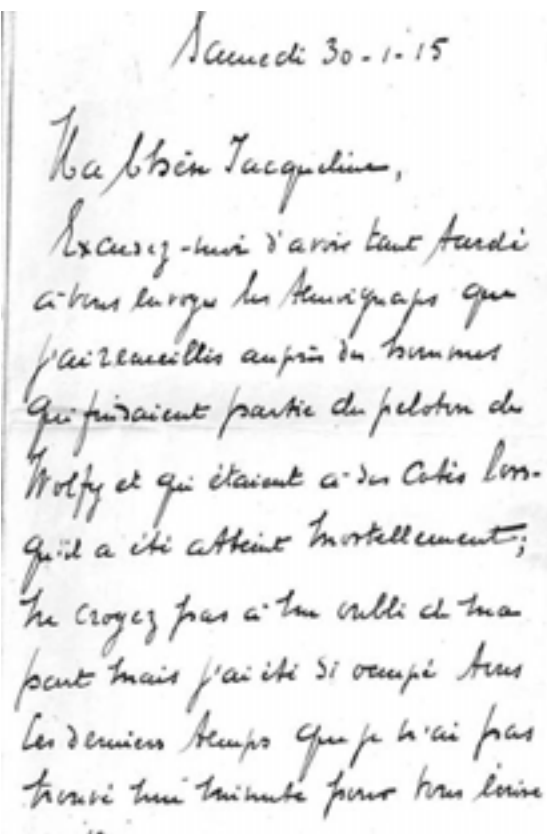 Samedi 30-1-15
Ma Chère Jacqueline,
Excusez-moi d'avoir tant tardé
à vous envoyer les témoignages que
j'ai recueillis auprès des hommes
qui faisaient partie du peloton de
Wolfy et qui étaient à ses cotés lors-
qu'il a été atteint mortellement;
ne croyez pas à un oubli de ma
part mais j'ai été si occupé tous
ces derniers temps que je n'ai pas
trouvé une minute pour vous écrire